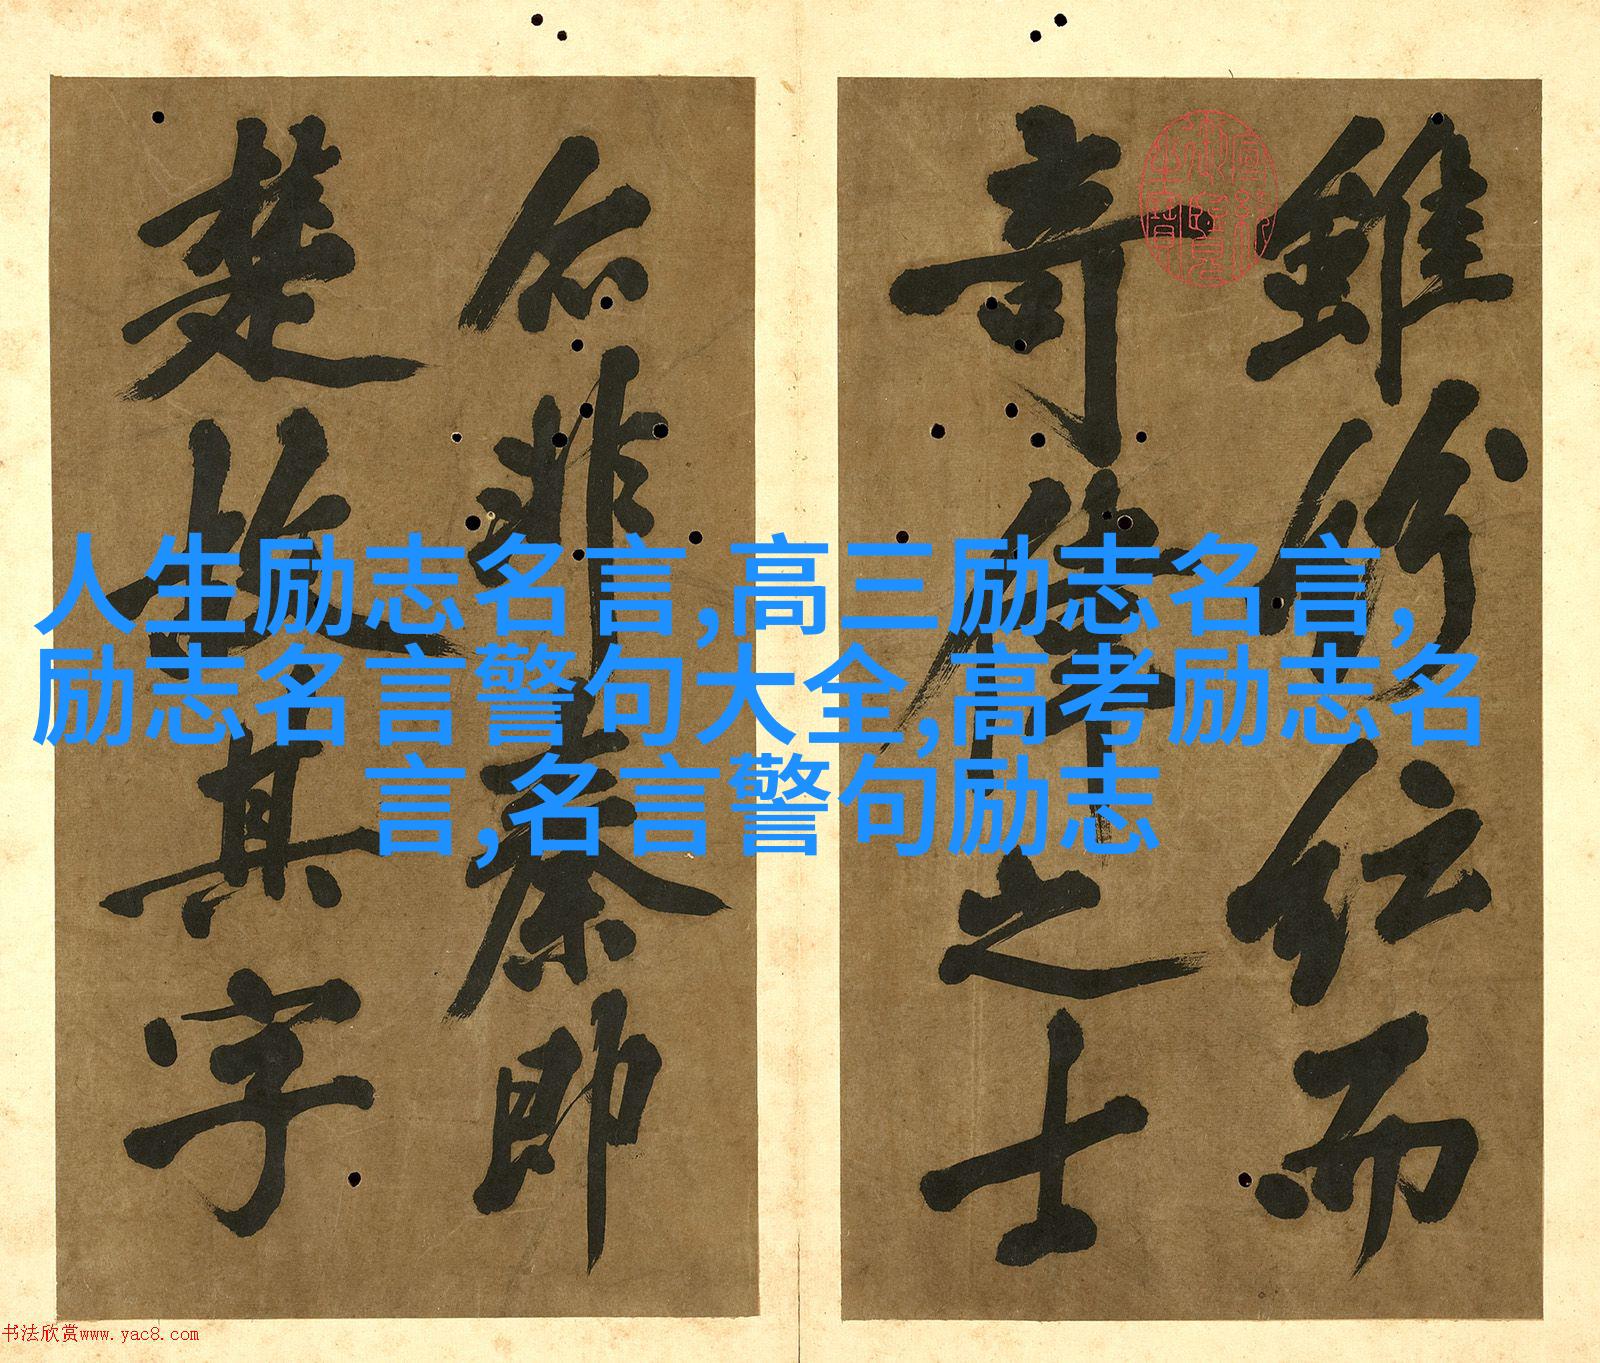 雖紛紜而
奇偉之士
人生励志名言,高三励志名言,
励志名言警句大全,高考励志名
言,名言警句励志
非秦即
楚故其字
书法欣赏www.yac8.com